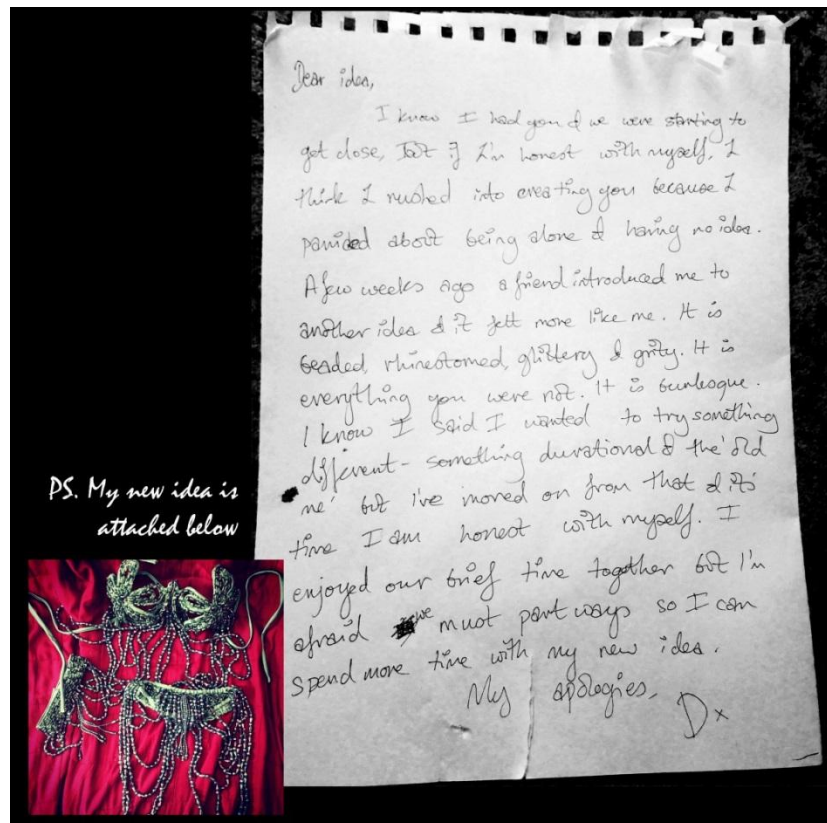 Dear idea,
I know I had you & we were starting to
get close, but if I'm honest with myself, I
think I rushed into creating you because I
panicked about being alone & having no idea.
A few weeks ago a friend introduced me to
another idea & it felt more like me. It is
beaded, rhinestoned, glittery & gritty. It is
everything you were not. It is burlesque.
I know I said I wanted to try something
different - something durational & the 'old
me' but i've moved on from that & it's
time I am honest with myself. I
enjoyed our brief time together but I'm
afraid we must part ways so I can
spend more time with my new idea.
My apologies,
Dx
PS. My new idea is
attached below